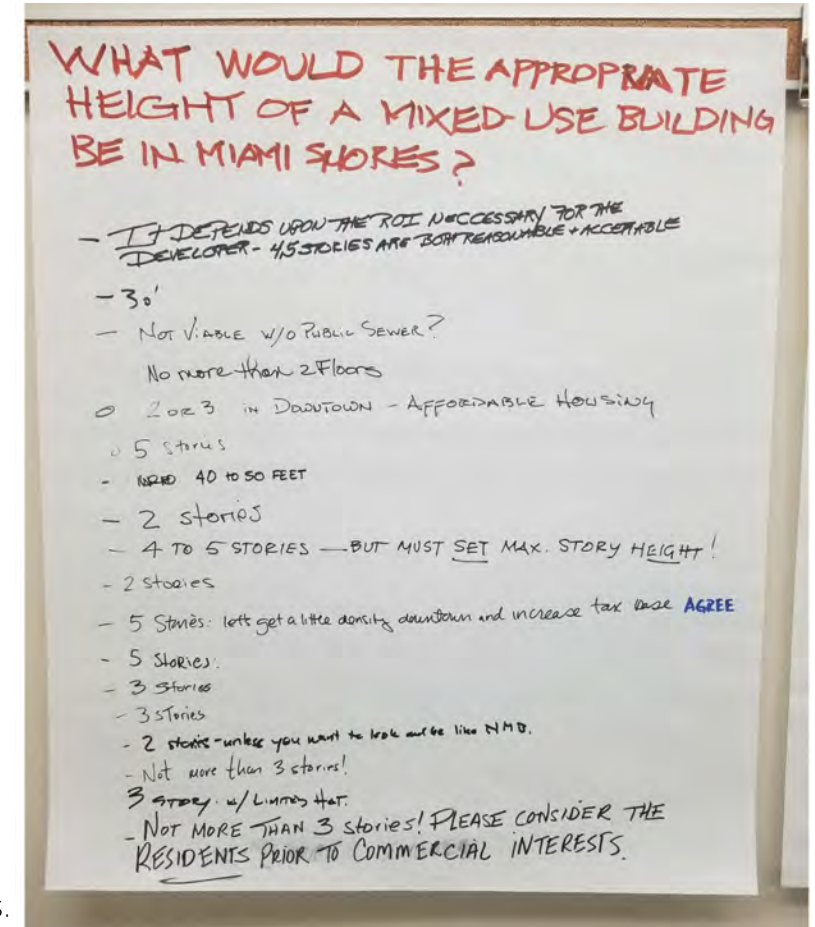 WHAT WOULD THE APPROPRIATE
HEIGHT OF A MIXED-USE BUILDING
BE IN MIAMI SHORES?
- IT DEPENDS UPON THE ROI NECCESSARY FOR THE
DEVELOPER - 4,5 STORIES ARE BOTH REASONABLE + ACCEPTABLE
- 30'
- NOT VIABLE W/O PUBLIC SEWER?
No more than 2 Floors
o 2 OR 3 IN DOWNTOWN - AFFORDABLE HOUSING
o 5 Stories
- 40 to 50 FEET
- 2 stories
- 4 TO 5 STORIES - BUT MUST SET MAX. STORY HEIGHT!
- 2 Stories
- 5 Stories: let's get a little density downtown and increase tax base AGREE
- 5 Stories.
- 3 Stories
- 3 STories
- 2 stories - unless you want to look and be like NMB.
- Not more than 3 stories!
3 STORY w/ LIMITED
- NOT MORE THAN 3 stories! PLEASE CONSIDER THE
RESIDENTS PRIOR TO COMMERCIAL INTERESTS.
s.